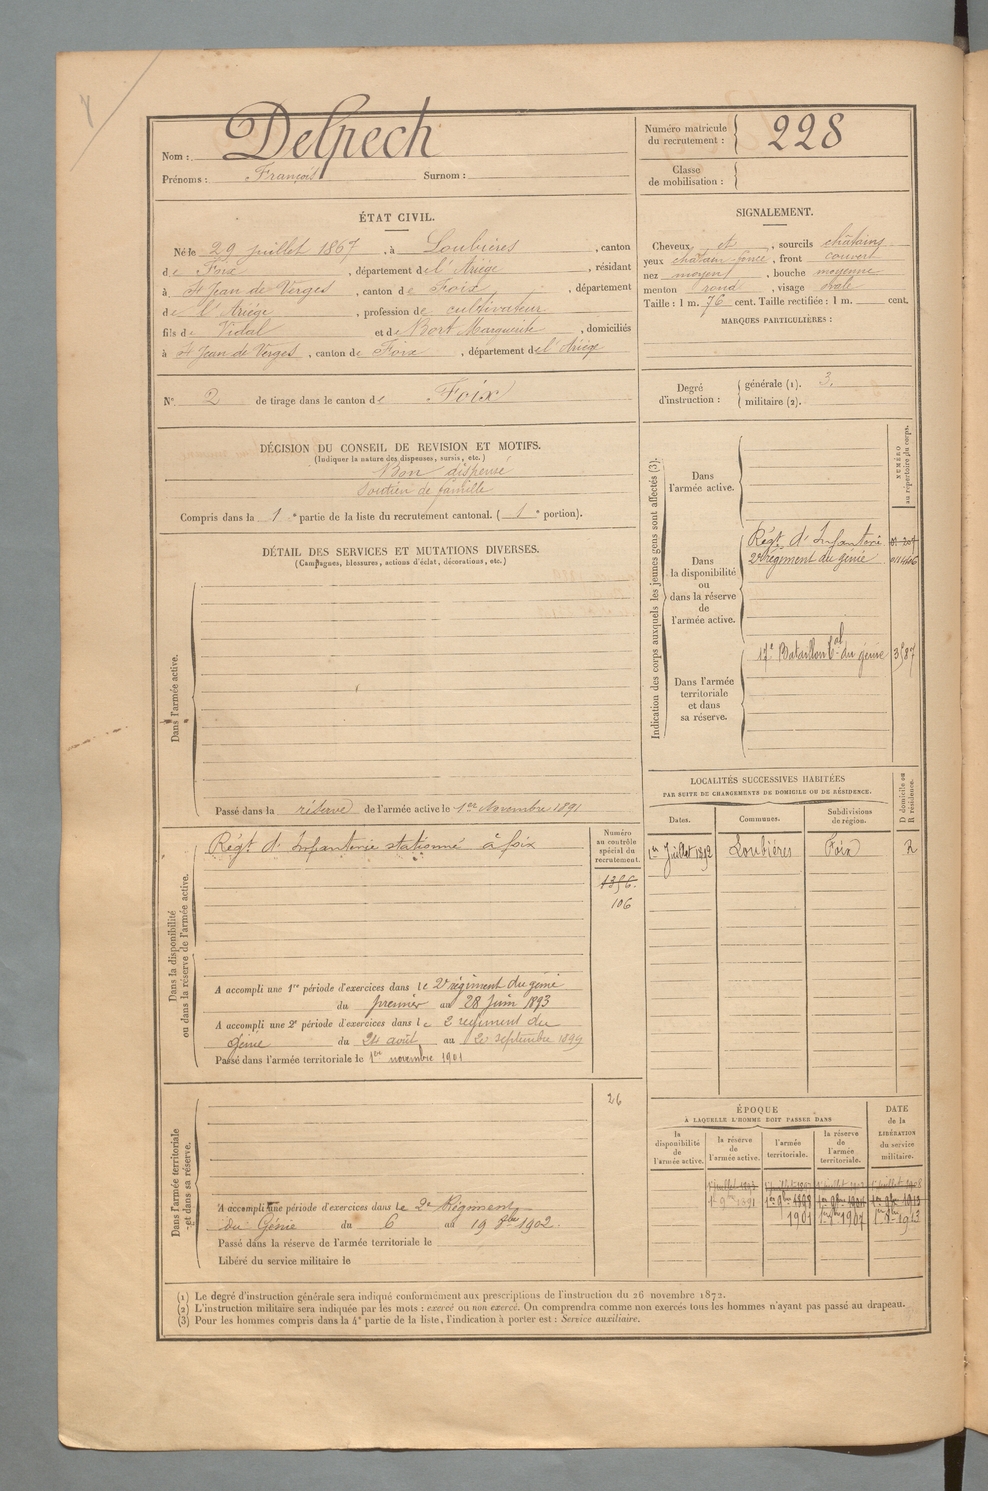 Nom : Delpech
Prénoms : François Surnom :
Numéro matricule du recrutement : 228
Classe de mobilisation :
ÉTAT CIVIL.
Né le 29 juillet 1867, à Loubières, canton
de Foix, département de l'Ariège, résidant
à St Jean de Verges, canton de Foix, département
de l'Ariège, profession de cultivateur
fils de Vidal et de Bort Marguerite, domiciliés
à St Jean de Verges, canton de Foix, département de l'Ariège
N° 2 de tirage dans le canton de Foix
SIGNALEMENT.
Cheveux et, sourcils châtains
yeux châtain foncé, front couvert
nez moyen, bouche moyenne
menton rond, visage ovale
Taille : 1 m. 76 cent. Taille rectifiée : 1 m. cent.
MARQUES PARTICULIÈRES :
Degré d'instruction :
générale (1). 3.
militaire (2).
DÉCISION DU CONSEIL DE REVISION ET MOTIFS.
(Indiquer la nature des dispenses, sursis, etc.)
Bon dispensé
Soutien de famille
Compris dans la 1e partie de la liste du recrutement cantonal. (1e portion).
DÉTAIL DES SERVICES ET MUTATIONS DIVERSES.
(Campagnes, blessures, actions d'éclat, décorations, etc.)
Dans l'armée active.
Passé dans la réserve de l'armée active le 1er Novembre 1891
Dans la disponibilité
ou dans la réserve de l'armée active.
Régt d'Infanterie stationné à foix
Numéro
au contrôle
spécial du
recrutement.
1356.
106
A accompli une 1re période d'exercices dans le 2e régiment du génie
du premier au 28 Juin 1893
A accompli une 2e période d'exercices dans le 2e régiment du
génie du 24 août au 20 septembre 1899
Passé dans l'armée territoriale le 1er novembre 1901
Dans l'armée territoriale
et dans sa réserve.
26
A accompli une période d'exercices dans le 2e Régiment
du Génie du 6 au 19 8bre 1902.
Passé dans la réserve de l'armée territoriale le
Libéré du service militaire le
Indication des corps auxquels les jeunes gens sont affectés (3).
NUMÉRO
au répertoire du corps.
Dans
l'armée active.
Dans
la disponibilité
ou
dans la réserve
de
l'armée active.
Régt d'Infanterie
2e régiment du génie
Dans l'armée
territoriale
et dans
sa réserve.
17e Bataillon Cal du génie 3587
LOCALITÉS SUCCESSIVES HABITÉES
PAR SUITE DE CHANGEMENTS DE DOMICILE OU DE RÉSIDENCE.
Dates. Communes. Subdivisions de région. D domicile ou R résidence.
1er Juillet 1892 Loubières Foix R
ÉPOQUE
À LAQUELLE L'HOMME DOIT PASSER DANS
DATE
de la
LIBÉRATION
du service
militaire.
la disponibilité de l'armée active.
la réserve de l'armée active.
l'armée territoriale.
la réserve de l'armée territoriale.
1er 9bre 1891 1er 9bre 1898
1901 1er 9bre 1907 1er 9bre 1913
(1) Le degré d'instruction générale sera indiqué conformément aux prescriptions de l'instruction du 26 novembre 1872.
(2) L'instruction militaire sera indiquée par les mots : exercé ou non exercé. On comprendra comme non exercés tous les hommes n'ayant pas passé au drapeau.
(3) Pour les hommes compris dans la 4e partie de la liste, l'indication à porter est : Service auxiliaire.